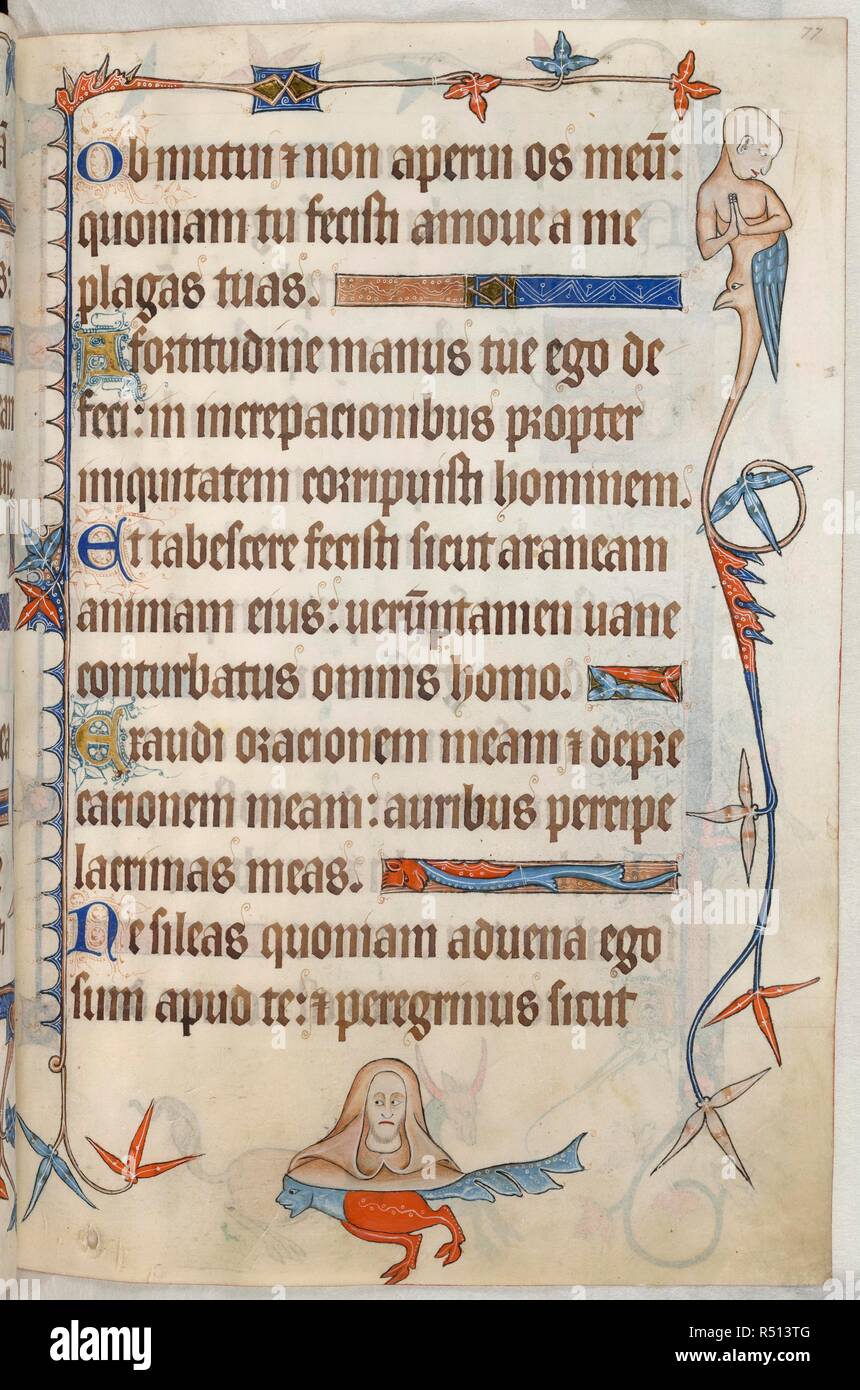 77
Obmutui ⁊ non aperui os meū:
quoniam tu fecisti amoue a me
plagas tuas.
A fortitudine manus tue ego de
feci: in increpacionibus propter
iniquitatem corripuisti hominem.
Et tabescere fecisti sicut araneam
animam eius: uerūntamen uane
conturbatus omnis homo.
Exaudi oracionem meam ⁊ depre
cacionem meam: auribus percipe
lacrimas meas.
Ne sileas quoniam aduena ego
sum apud te: ⁊ peregrinus sicut
alamy
Image ID: R513TG
www.alamy.com